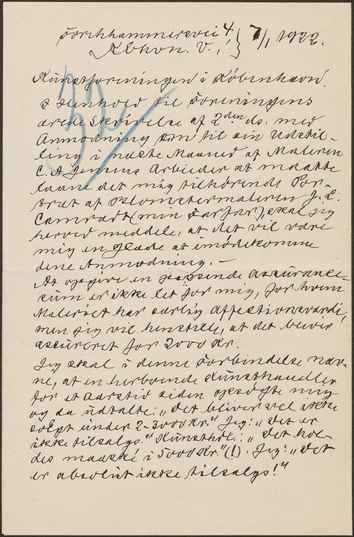 Forchhammersvei 4,
Kbhvn. V., } 7/1 1922.
Kunstforeningen i København.
I Henhold til Foreningens
ærede Skrivelse af 2den ds. med
Anmodning om til en Udstil-
ling i næste Maaned af Maleren
C. A. Jensens Arbejder at maatte
laane det mig tilhørende Por-
træt af Blomstermaleren J. L.
Camradt (min Farfar), skal jeg
herved meddele, at det vil være
mig en Glæde at imødekomme
dene Anmodning. —
At opgive en passende Assurance-
sum er ikke let for mig, for hvem
Maleriet har særlig Affectionsværdi,
men jeg vil henstille, at det bliver
assureret for 2000 Kr.
Jeg skal i denne Forbindelse næv-
ne, at en herboende Kunsthandler
for et Aarstid siden opsøgte mig
og da udtalte: "Det bliver vel ikke
solgt under 2-3000 Kr." Jeg: "Det er
ikke tilsalgs." Kunsthdl.: "Det hol-
des maaske i 5000 Kr." (!). Jeg: "Det
er absolut ikke tilsalgs!"